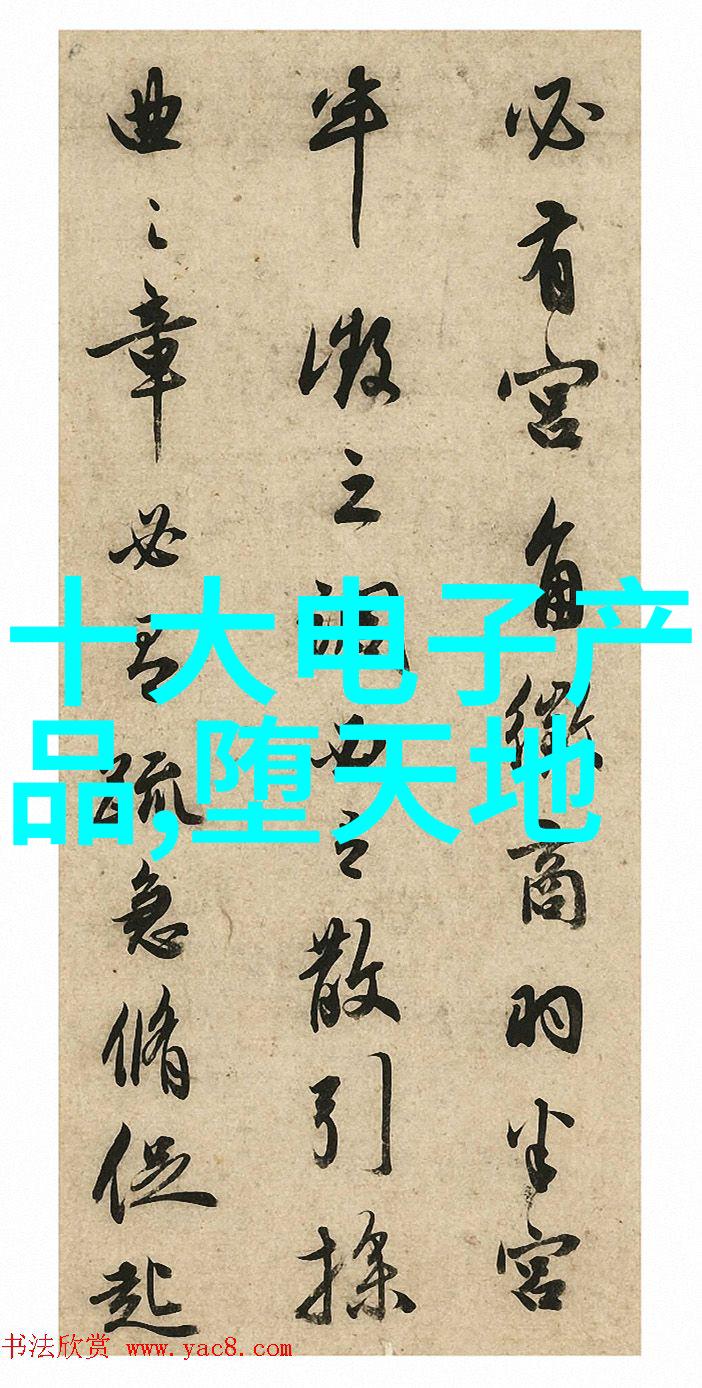 必有宫角徵商羽半宫
半徵之调散引操
曲之章必有疏急脩促起
十大电子产
品,堕天地
书法欣赏 www.yac8.com